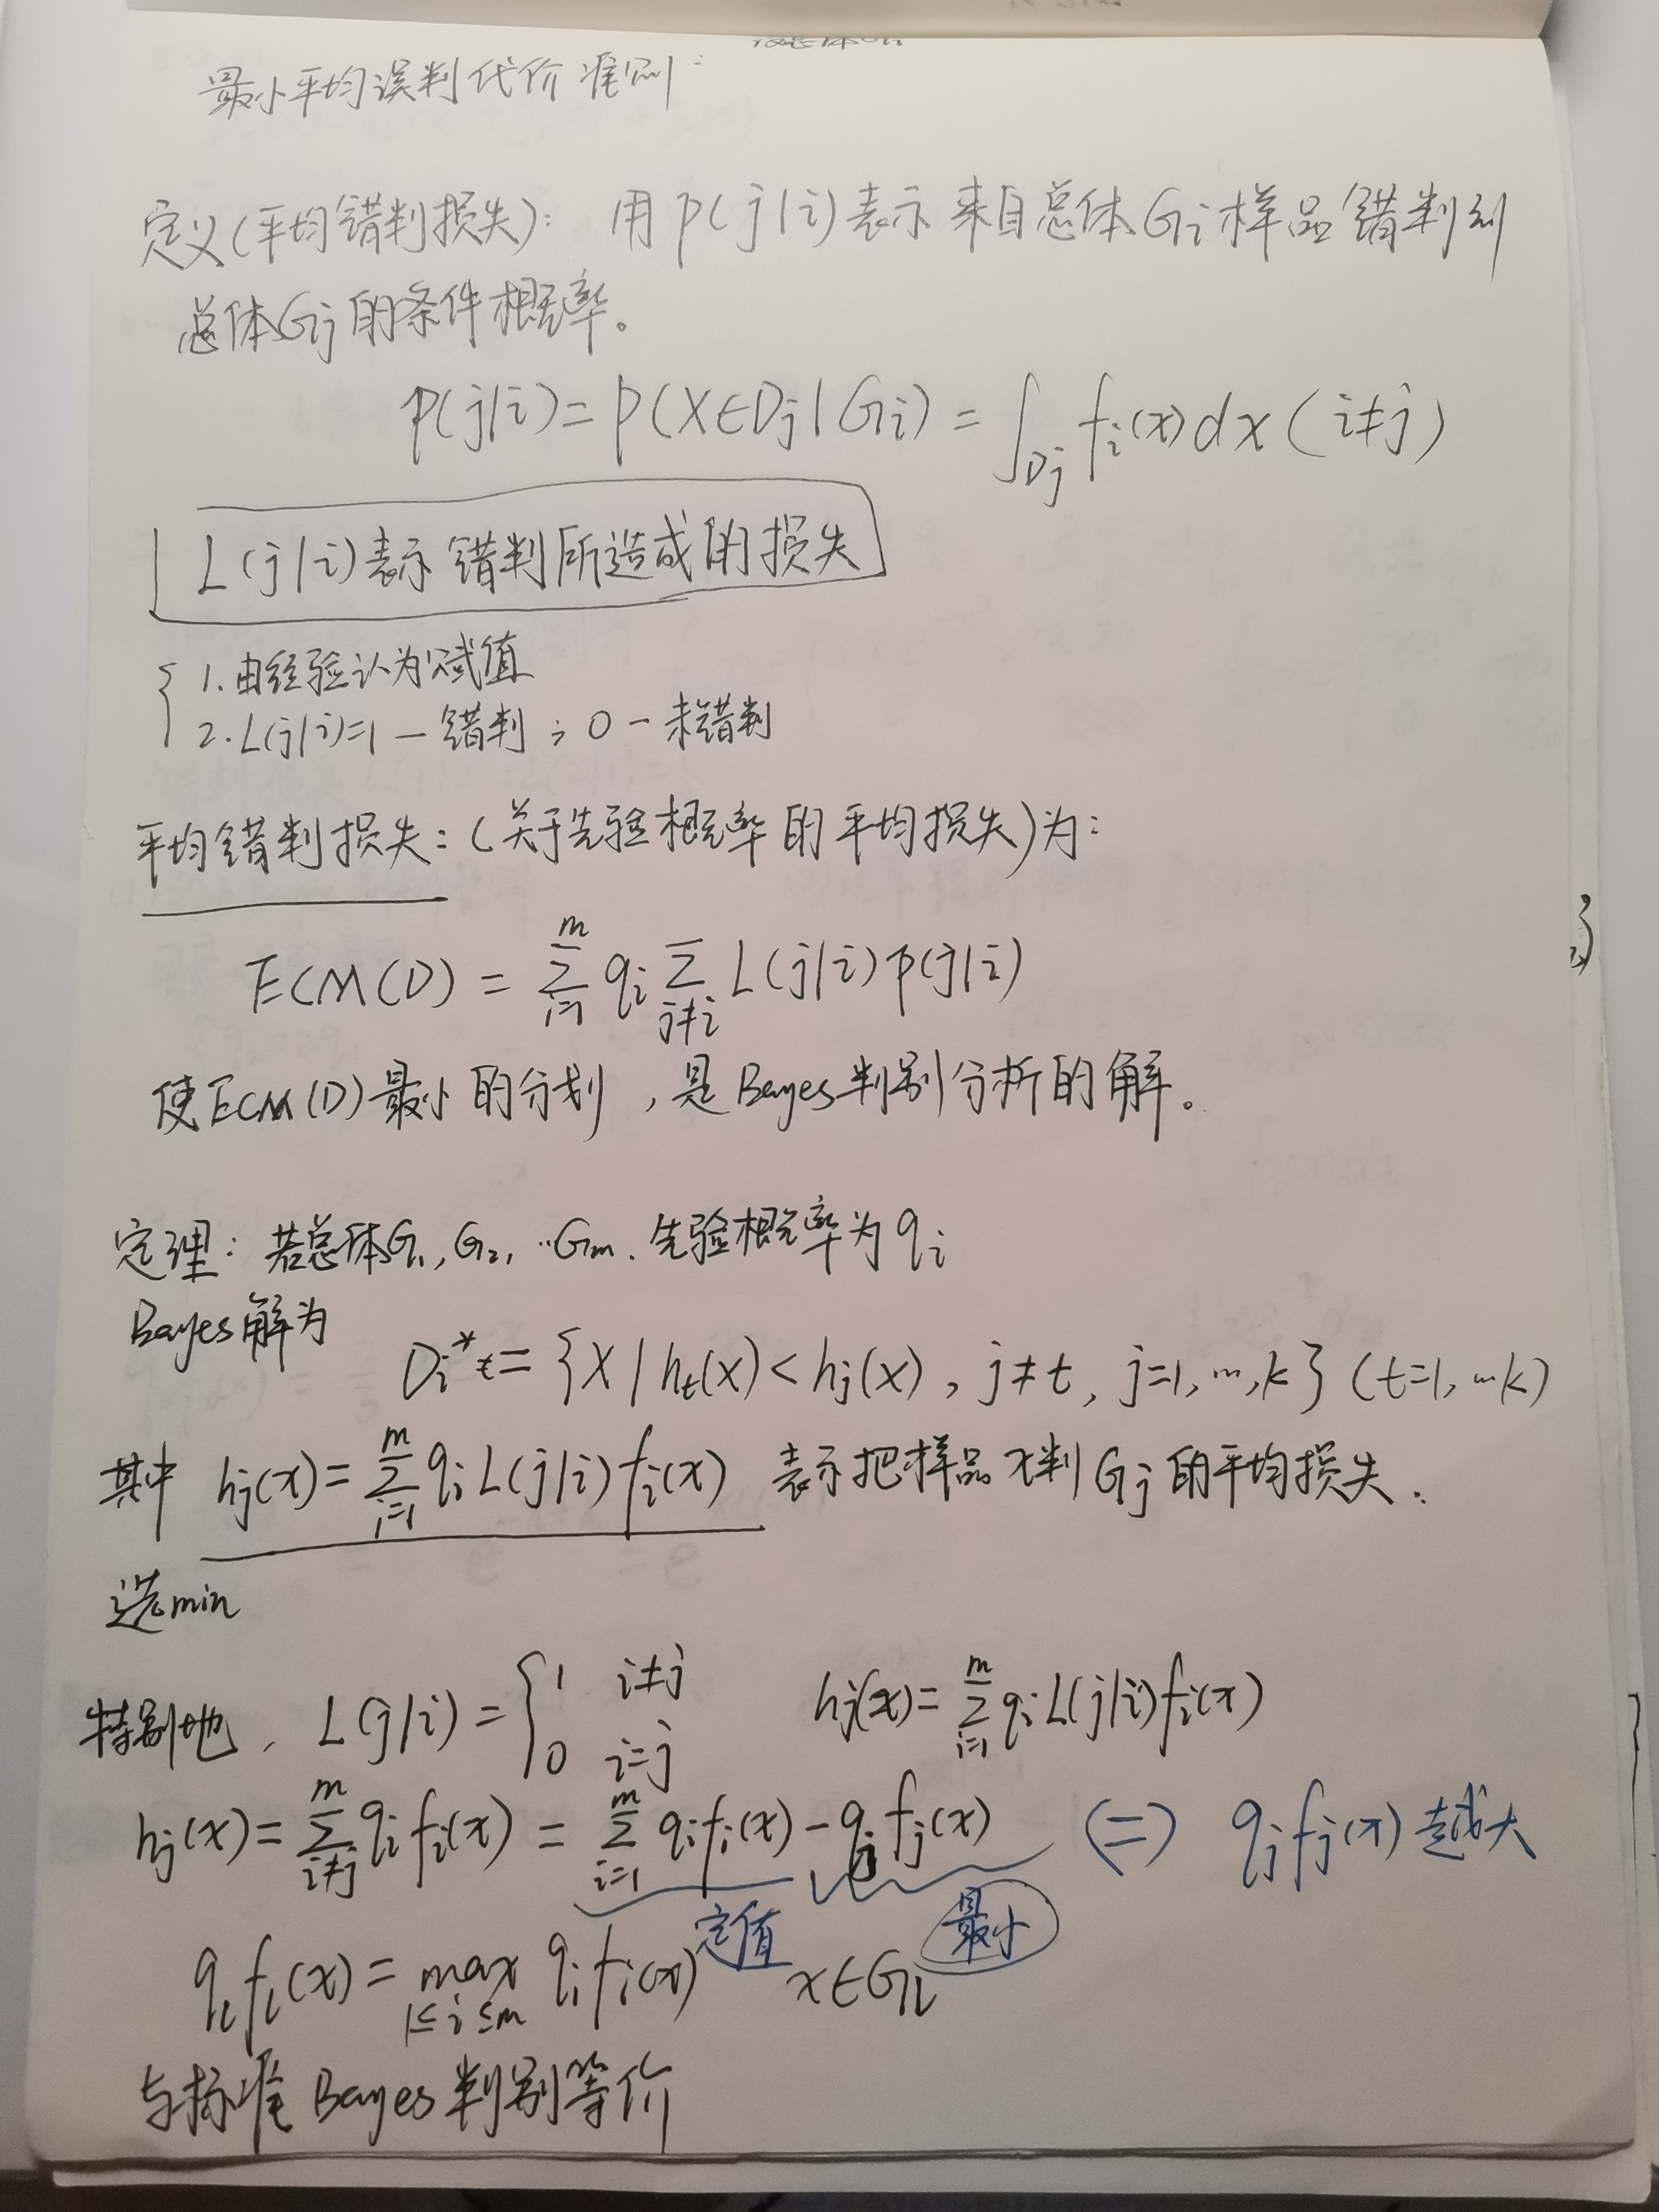 最小平均误判代价准则:
定义(平均错判损失): 用p(j|i)表示来自总体Gi样品错判到
总体Gj的条件概率。
p(j|i)=p(X∈Dj|Gi)=∫_Dj fi(x)dx (i≠j)
L(j|i)表示错判所造成的损失
{ 1.由经验认为赋值
2.L(j|i)=1—错判;0—未错判
平均错判损失:(关于先验概率的平均损失)为:
ECM(D) = Σ_{i=1}^{m} qi Σ_{j≠i} L(j|i)p(j|i)
使ECM(D)最小的分划,是Bayes判别分析的解。
定理: 若总体G1,G2,…Gm.先验概率为qi
Bayes解为
Di*t={X|ht(x)<hj(x), j≠t, j=1,…,k}(t=1,…k)
其中 hj(x)=Σ_{i=1}^{m} qi L(j|i)fi(x) 表示把样品x判Gj的平均损失.
选min
特别地, L(j|i)={1 i≠j 0 i=j hj(x)=Σ_{i=1}^{m} qi L(j|i)fi(x)
hj(x)=Σ_{i≠j}^{m} qi fi(x) = Σ_{i=1}^{m} qi fi(x)-qj fj(x) (=) qj fj(x)越大
定值 最小
ql fl(x)=max_{1≤i≤m} qi fi(x) x∈Gl
与标准Bayes判别等价